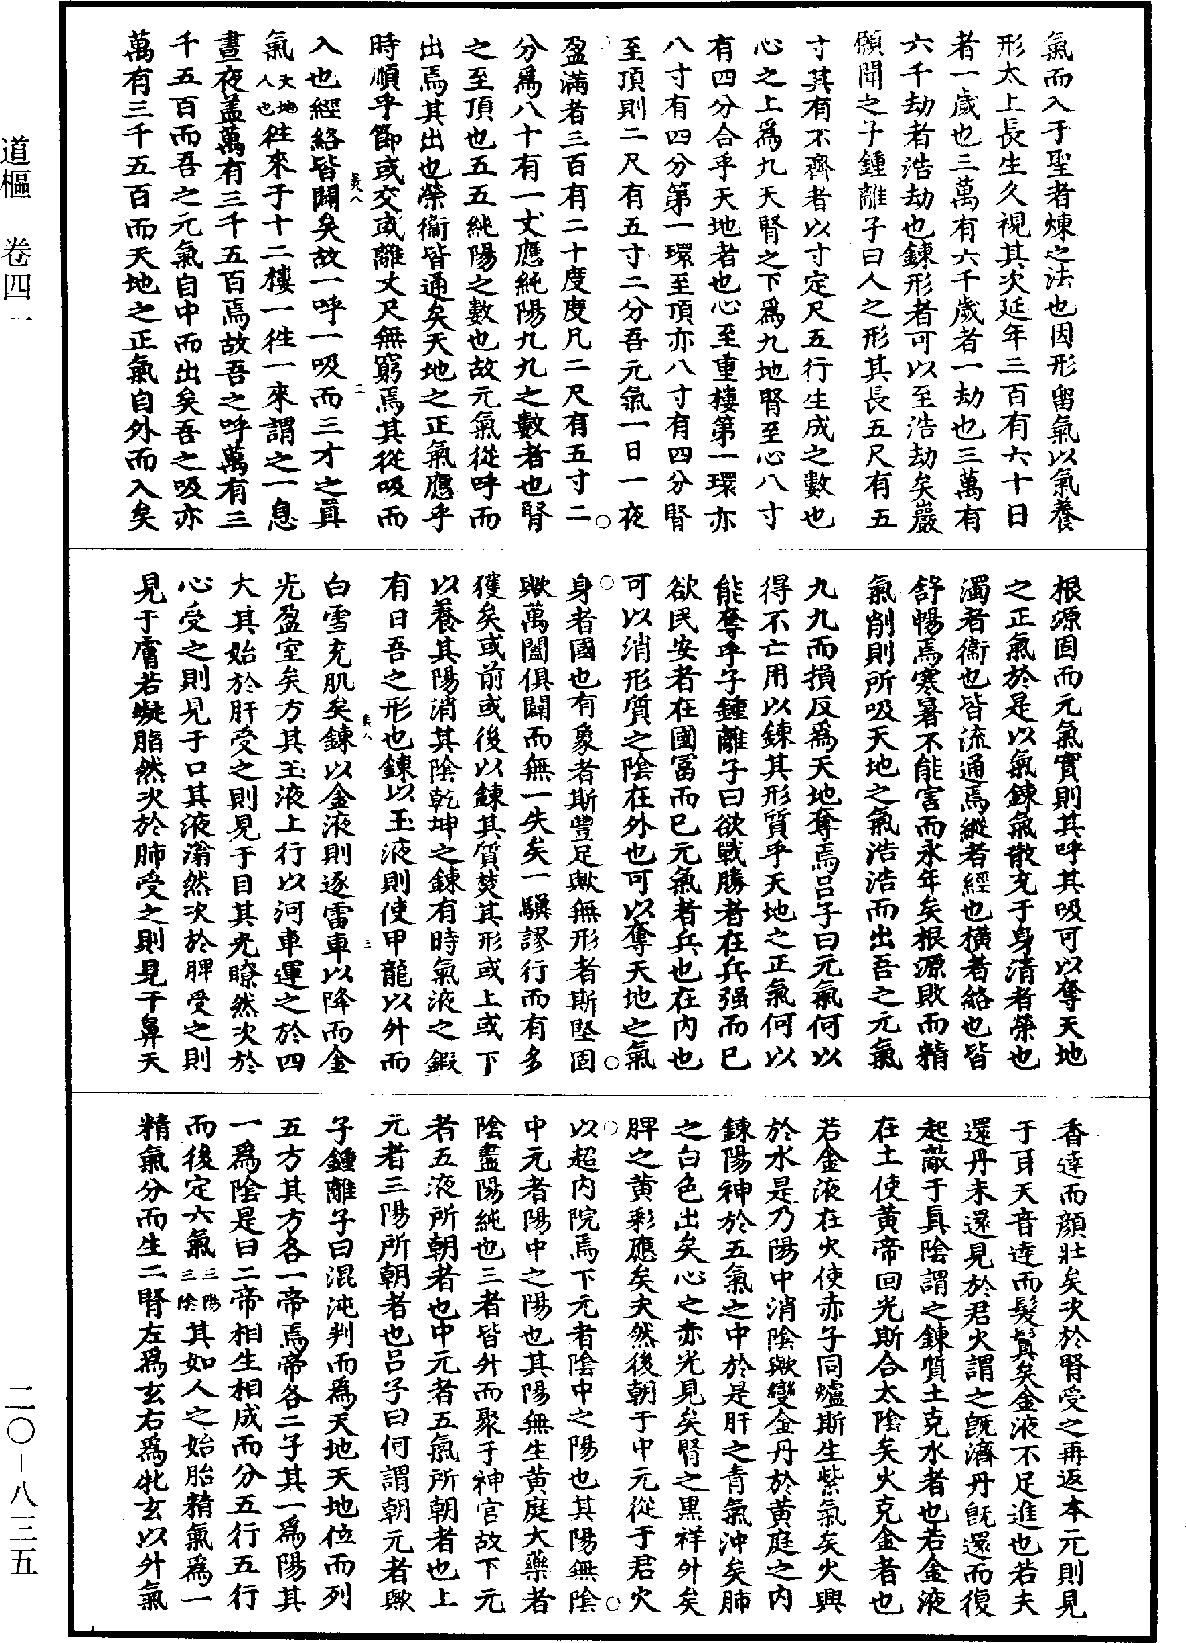 氣而入于聖者煉之法也因形留氣以氣養
形太上長生久視其次延年三百有六十日
者一歲也三萬有六千歲者一劫也三萬有
六千劫者浩劫也鍊形者可以至浩劫矣嚴
願聞之子鍾離子曰人之形其長五尺有五
寸其有不齊者以寸定尺五行生成之數也
心之上爲九天腎之下爲九地腎至心八寸
有四分合乎天地者也心至重樓第一環亦
八寸有四分第一環至頂亦八寸有四分腎
至頂則二尺有五寸二分吾元氣一日一夜
盈滿者三百有二十度度凡二尺有五寸二
分爲八十有一丈應純陽九九之數者也腎
之至頂也五五純陽之數也故元氣從呼而
出焉其出也榮衞皆通矣天地之正氣應乎
時順乎節或交或離丈尺無窮焉其從吸而
入也經絡皆闢矣故一呼一吸而三才之眞
氣天地人也往來于十二樓一往一來謂之一息
晝夜盖萬有三千五百焉故吾之呼萬有三
千五百而吾之元氣自中而出矣吾之吸亦
萬有三千五百而天地之正氣自外而入矣
根源固而元氣實則其呼其吸可以奪天地
之正氣於是以氣鍊氣散充于身清者榮也
濁者衞也皆流通焉縱者經也橫者絡也皆
舒暢焉寒暑不能害而永年矣根源敗而精
氣削則所吸天地之氣浩浩而出吾之元氣
九九而損反爲天地奪焉呂子曰元氣何以
得不亡用以鍊其形質乎天地之正氣何以
能奪乎子鍾離子曰欲戰勝者在兵强而已
欲民安者在國富而已元氣者兵也在内也
可以消形質之陰在外也可以奪天地之氣
身者國也有象者斯豐足歟無形者斯堅固
歟萬闔俱闢而無一失矣一驥謬行而有多
獲矣或前或後以鍊其質焚其形或上或下
以養其陽消其陰乾坤之鍊有時氣液之鍛
有日吾之形也鍊以玉液則使甲龍以外而
白雪充肌矣鍊以金液則逐雷車以降而金
光盈室矣方其玉液上行以河車運之於四
大其始於肝受之則見于目其光瞭然次於
心受之則見于口其液滃然次於脾受之則
見于膚若凝脂然次於肺受之則見于鼻天
香達而顔壯矣次於腎受之再返本元則見
于耳天音達而髮鬒矣金液不足進也若夫
還丹未還見於君火謂之旣濟丹旣還而復
起敵于眞陰謂之鍊質土克水者也若金液
在土使黃帝回光斯合太陰矣火克金者也
若金液在火使赤子同爐斯生紫氣矣火興
於水是乃陽中消陰歟變金丹於黃庭之内
鍊陽神於五氣之中於是肝之青氣沖矣肺
之白色出矣心之赤光見矣腎之黑祥外矣
脾之黃彩應矣夫然後朝于中元從于君火
以超内院焉下元者陰中之陽也其陽無陰
中元者陽中之陽也其陽無生黃庭大藥者
陰盡陽純也三者皆升而聚于神宮故下元
者五液所朝者也中元者五氣所朝者也上
元者三陽所朝者也呂子曰何謂朝元者歟
子鍾離子曰混沌判而爲天地天地位而列
五方其方各一帝焉帝各二子其一爲陽其
一爲陰是曰二帝相生相成而分五行五行
而後定六氣三陽三陰其如人之始胎精氣爲一
精氣分而生二腎左爲玄右爲牝玄以外氣
道樞 卷四一
二〇－八三五